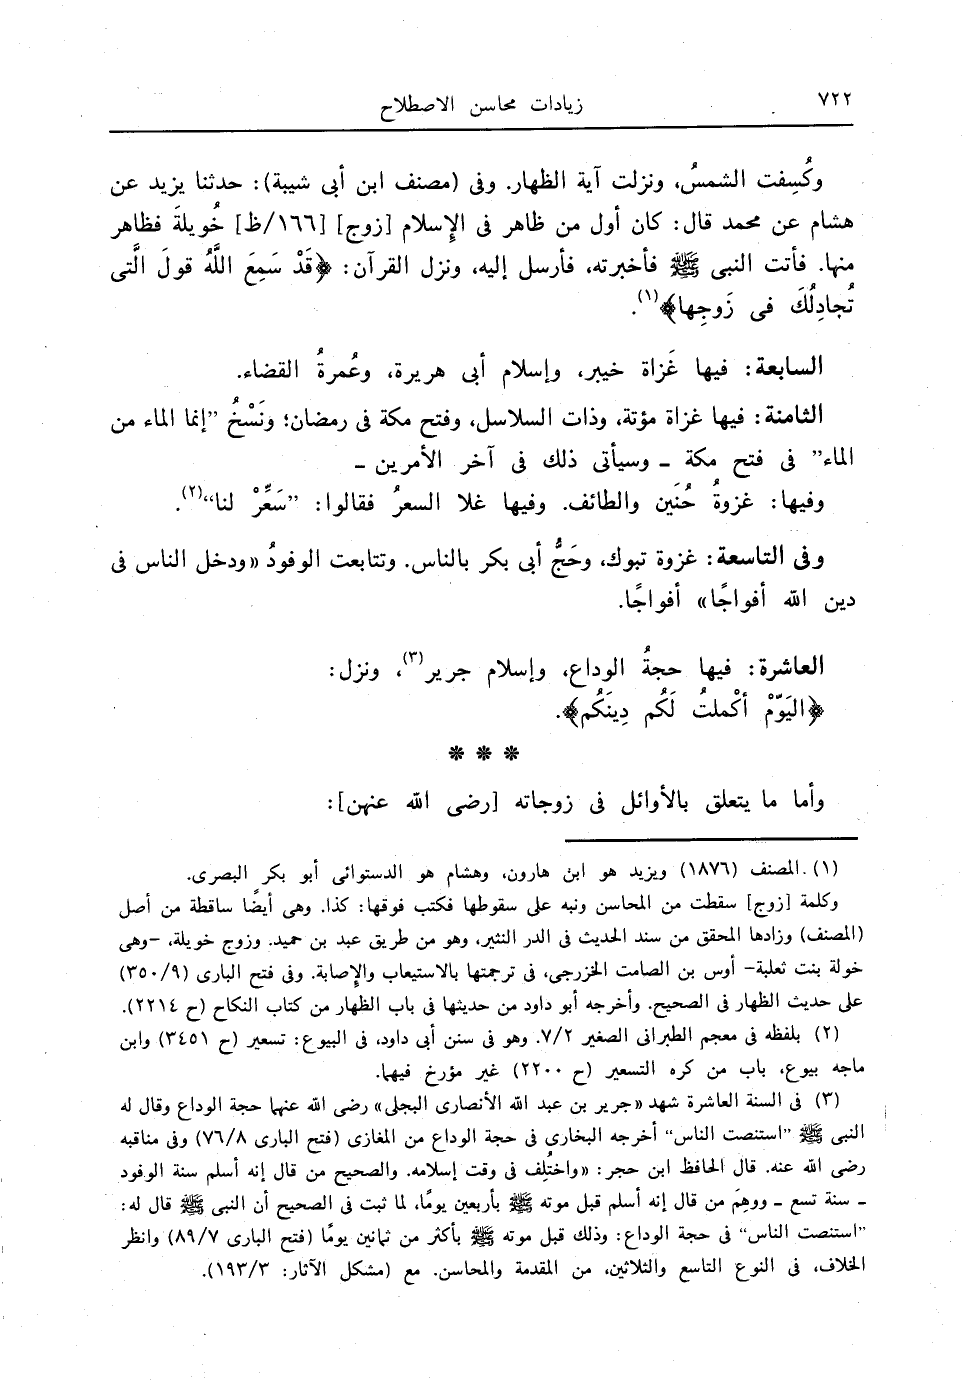 ٧٢٢
زيادات محاسن الاصطلاح
وكُسِفت الشمسُ، ونزلت آية الظهار. وفى (مصنف ابن أبى شيبة): حدثنا يزيد عن
هشام عن محمد قال: كان أول من ظاهر فى الإسلام [زوج] [١٦٦/ظ] خُويلةَ فظاهر
منها. فأتت النبى ﷺ فأخبرته، فأرسل إليه، ونزل القرآن: ﴿قَدْ سَمِعَ اللَّهُ قولَ الَّتى
تُجادِلُكَ فى زَوجِها﴾(١).
السابعة: فيها غَزاة خيبر، وإسلام أبى هريرة، وعُمرةُ القضاء.
الثامنة: فيها غزاة مؤتة، وذات السلاسل، وفتح مكة فى رمضان؛ ونَسْخُ ”إنما الماء من
الماء” فى فتح مكة ـ وسيأتى ذلك فى آخر الأمرين ـ
وفيها: غزوةُ حُنَين والطائف. وفيها غلا السعرُ فقالوا: ”سَعِّرْ لنا“(٢).
وفى التاسعة: غزوة تبوك، وحَجُّ أبى بكر بالناس. وتتابعت الوفودُ «ودخل الناس فى
دين الله أفواجًا» أفواجًا.
العاشرة: فيها حجةُ الوداع، وإسلام جرير(٣)، ونزل:
﴿اليَوّمْ أكْملتُ لَكُم دِينَكُم﴾.
* * *
وأما ما يتعلق بالأوائل فى زوجاته [رضى الله عنهن]:
(١) .المصنف (١٨٧٦) ويزيد هو ابن هارون، وهشام هو الدستوائى أبو بكر البصرى.
وكلمة [زوج] سقطت من المحاسن ونبه على سقوطها فكتب فوقها: كذا. وهى أيضًا ساقطة من أصل
(المصنف) وزادها المحقق من سند الحديث فى الدر النثير، وهو من طريق عبد بن حميد. وزوج خويلة، -وهى
خولة بنت ثعلبة- أوس بن الصامت الخزرجى، فى ترجمتها بالاستيعاب والإصابة. وفى فتح البارى (٣٥٠/٩)
على حديث الظهار فى الصحيح. وأخرجه أبو داود من حديثها فى باب الظهار من كتاب النكاح (ح ٢٢١٤).
(٢) بلفظه فى معجم الطبرانى الصغير ٧/٢. وهو فى سنن أبى داود، فى البيوع: تسعير (ح ٣٤٥١) وابن
ماجه بيوع، باب من كره التسعير (ح ٢٢٠٠) غير مؤرخ فيهما.
(٣) فى السنة العاشرة شهد «جرير بن عبد الله الأنصارى البجلى» رضى الله عنهما حجة الوداع وقال له
النبى ﷺ ”استنصت الناس” أخرجه البخارى فى حجة الوداع من المغازى (فتح البارى ٧٦/٨) وفى مناقبه
رضى الله عنه. قال الحافظ ابن حجر: «واختُلِف فى وقت إسلامه. والصحيح من قال إنه أسلم سنة الوفود
ـ سنة تسع ـ ووهِمَ من قال إنه أسلم قبل موته ﷺ بأربعين يومًا، لما ثبت فى الصحيح أن النبى ﷺ قال له:
”استنصت الناس” فى حجة الوداع: وذلك قبل موته ﷺ بأكثر من ثمانين يومًا (فتح البارى ٨٩/٧) وانظر
الخلاف، فى النوع التاسع والثلاثين، من المقدمة والمحاسن. مع (مشكل الآثار: ١٩٣/٣).